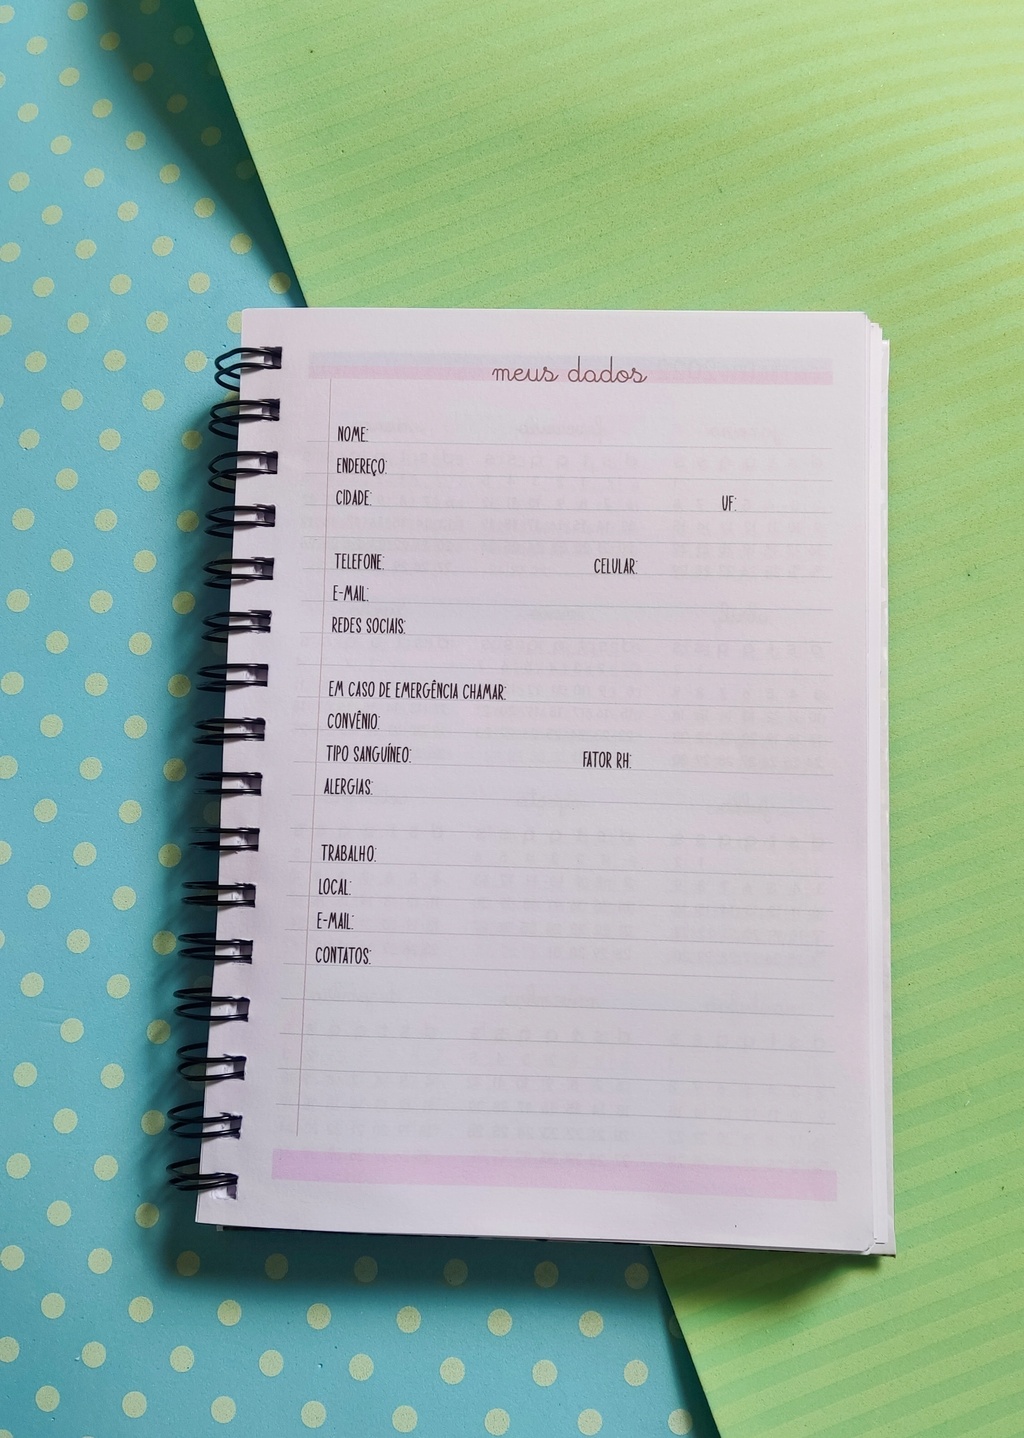 meus dados
NOME:
ENDEREÇO:
CIDADE: UF:
TELEFONE: CELULAR:
E-MAIL:
REDES SOCIAIS:
EM CASO DE EMERGÊNCIA CHAMAR:
CONVÊNIO:
TIPO SANGUÍNEO: FATOR RH:
ALERGIAS:
TRABALHO:
LOCAL:
E-MAIL:
CONTATOS: